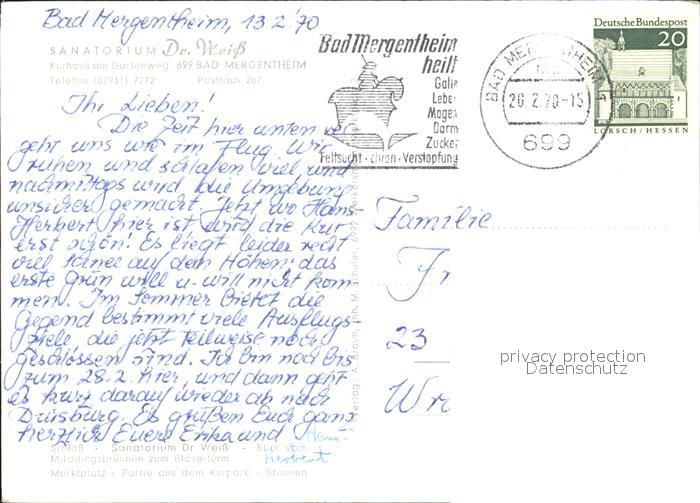 Bad Mergentheim, 13 2. 70
SANATORIUM Dr. Weiß
Kurhaus am Gartenweg 699 BAD MERGENTHEIM
Telefon (07931) 7272 Postfach 207
Ihr Lieben!
Die Zeit hier unten ver-
geht uns wie im Flug. Wir
ruhen und schlafen viel, und
nachmittags wird die Umgebung
unsicher gemacht. Jetzt wo Hans-
Herbert hier ist, wird die Kur
erst schön! Es liegt leider recht
viel Schnee auf den Höhen; das
erste Grün will u. will nicht kom-
men. Im Sommer bietet die
Gegend bestimmt viele Ausflugs-
ziele, die jetzt teilweise noch
geschlossen sind. Ich bin noch bis
zum 28.2. hier, und dann geht
es kurz darauf wieder ab nach
Duisburg. Es grüßen Euch ganz
herzlich Eure Erika und Hans-
Herbert
Schloß - Sanatorium Dr Weiß - Blick vom
Mittlingsbrunnen zum Bläserturm
Marktplatz - Partie aus dem Kurpark - Brunnen
Verlag: A. Braun, Inh. M. Schuler, 6992
Bad Mergentheim
heilt
Galle
Leber
Magen
Darm
Zucker
Fettsucht · chron · Verstopfung
BAD MERGENTHEIM
20.2.70-15
699
Deutsche Bundespost
20
LORSCH / HESSEN
Familie
Fr
23
Wr
privacy protection
Datenschutz